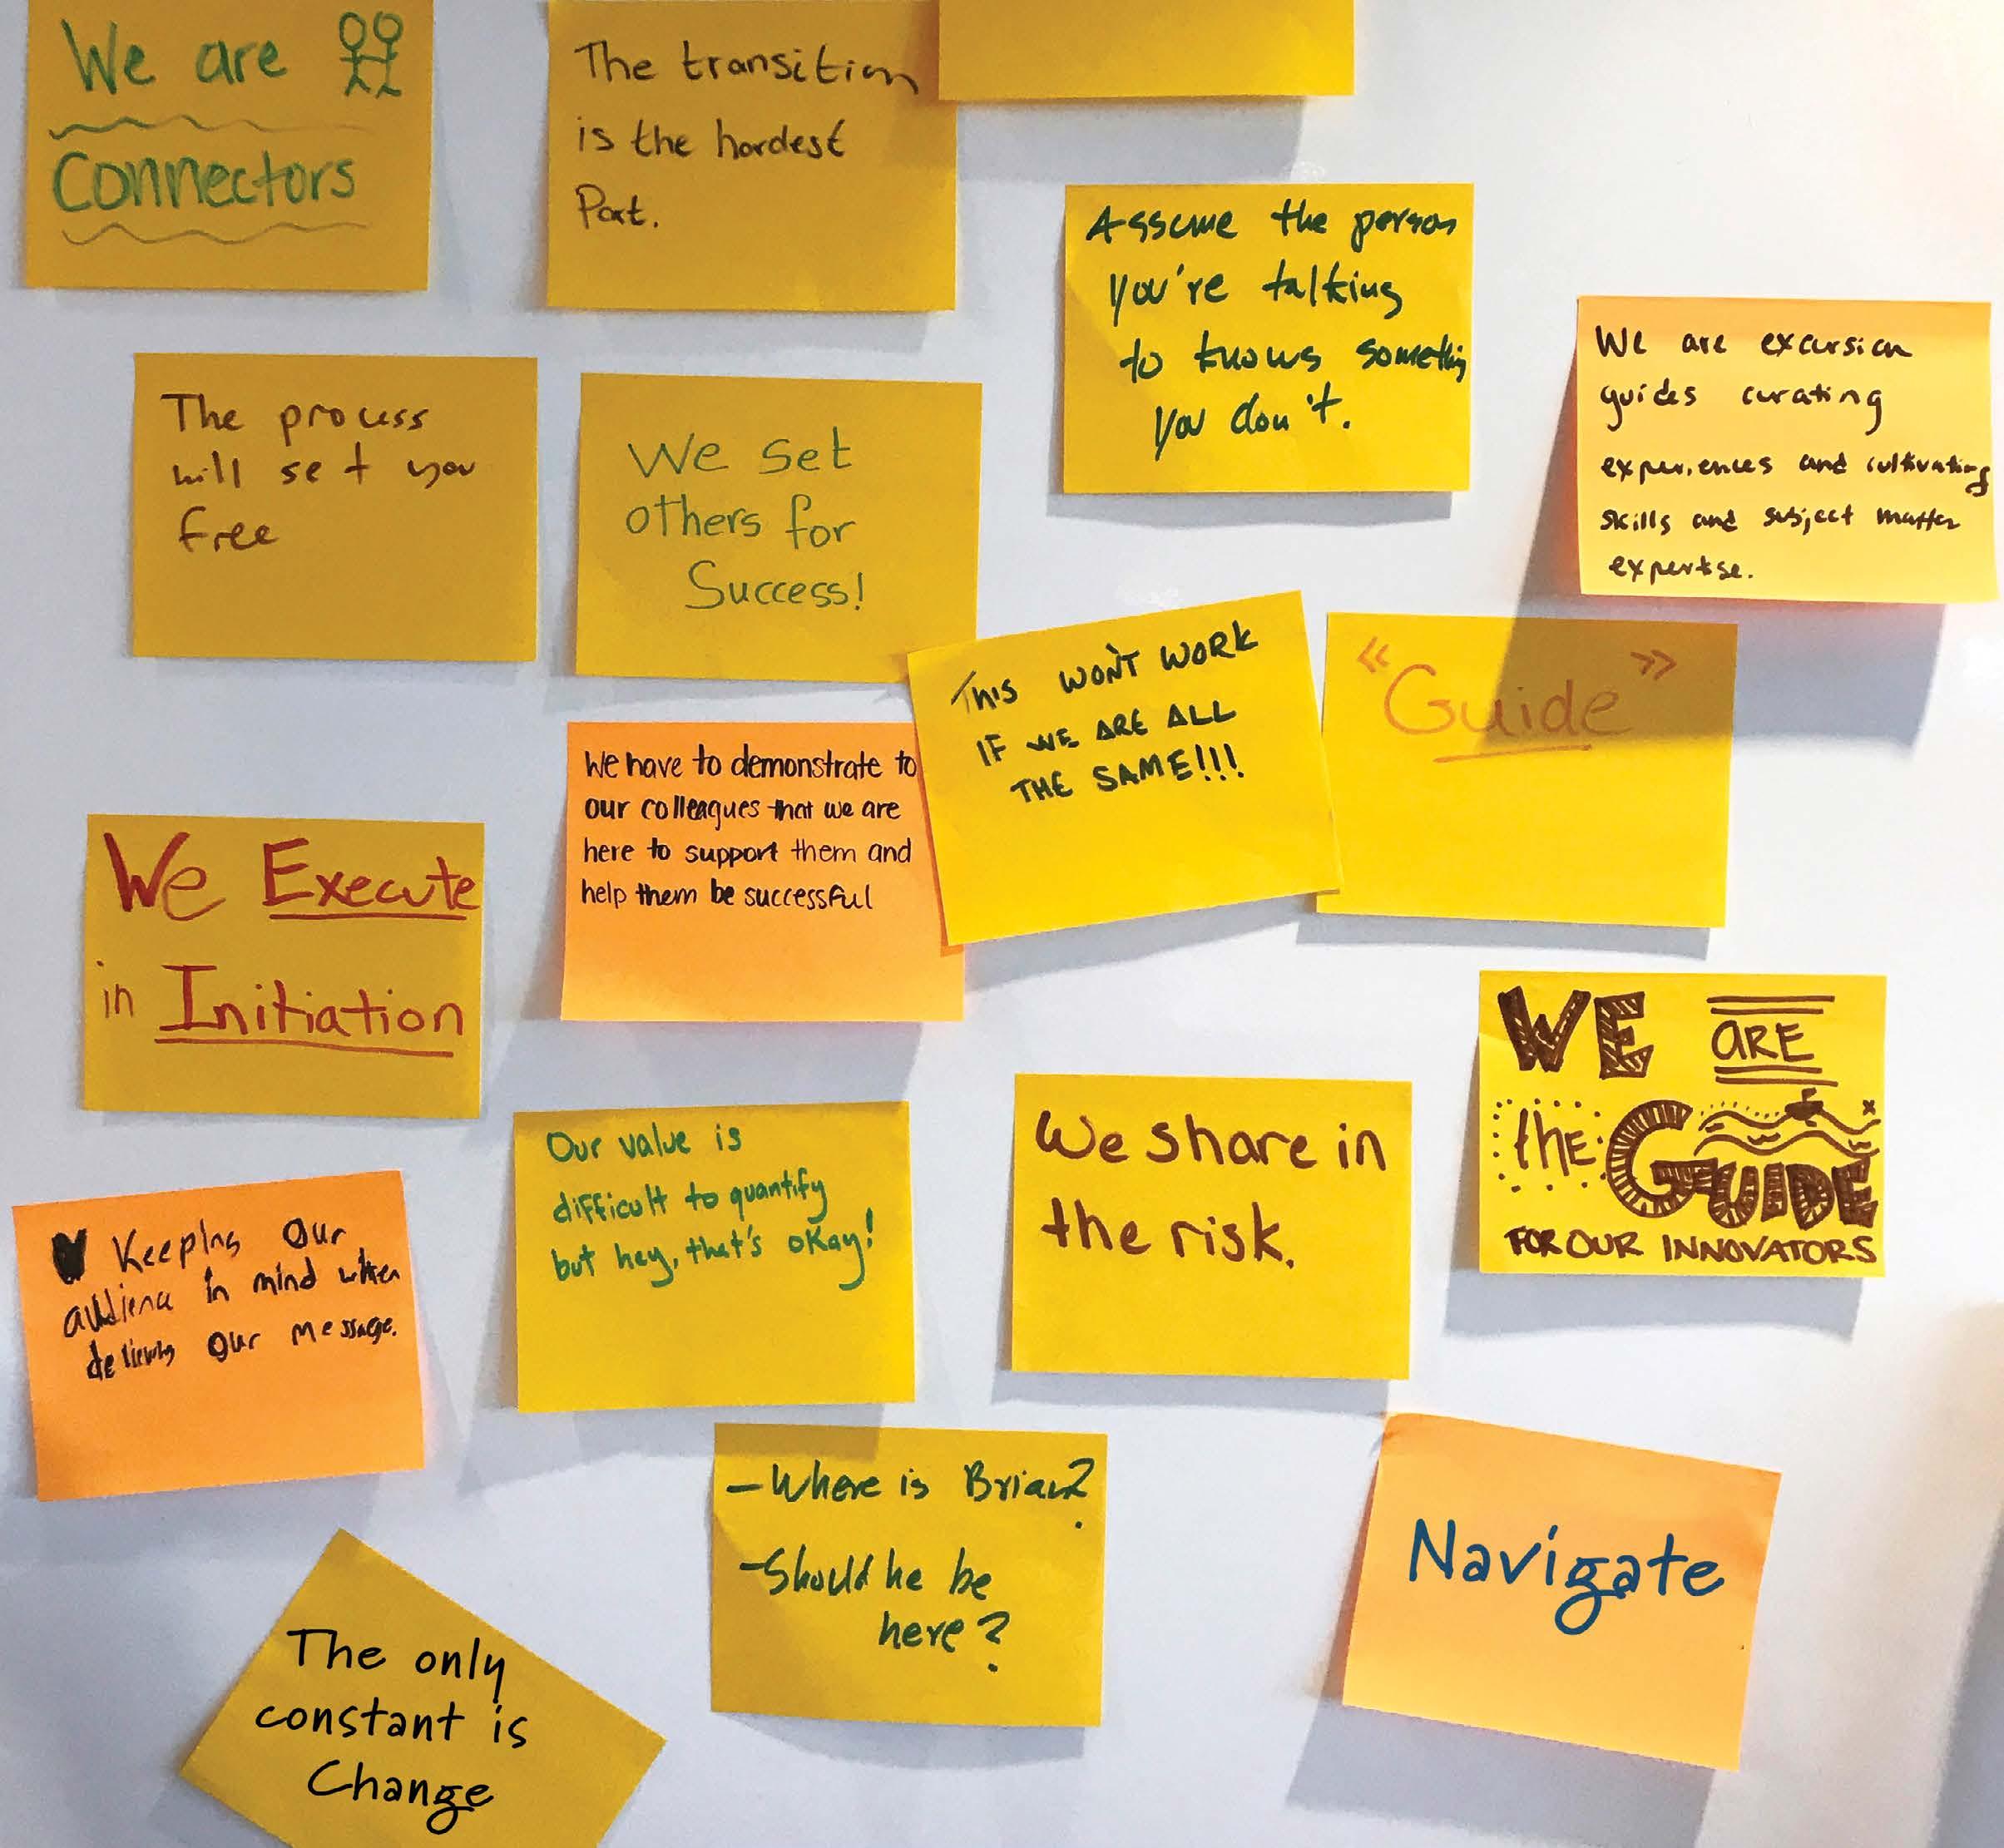 We are
Connectors
The transition
is the hardest
Part.
Assume the person
you're talking
to knows something
you don't.
We are excursion
guides curating
experiences and cultivating
skills and subject matter
expertise.
The process
will set you
free
We set
others for
Success!
This won't work
if we are all
the same!!!
"Guide"
We have to demonstrate to
our colleagues that we are
here to support them and
help them be successful
We Execute
in Initiation
WE ARE
the GUIDE
FOR OUR INNOVATORS
Our value is
difficult to quantify
but hey, that's okay!
We share in
the risk.
Keeping our
audience in mind when
delivering our message.
- Where is Brian?
- Should he be
here?
Navigate
The only
constant is
Change